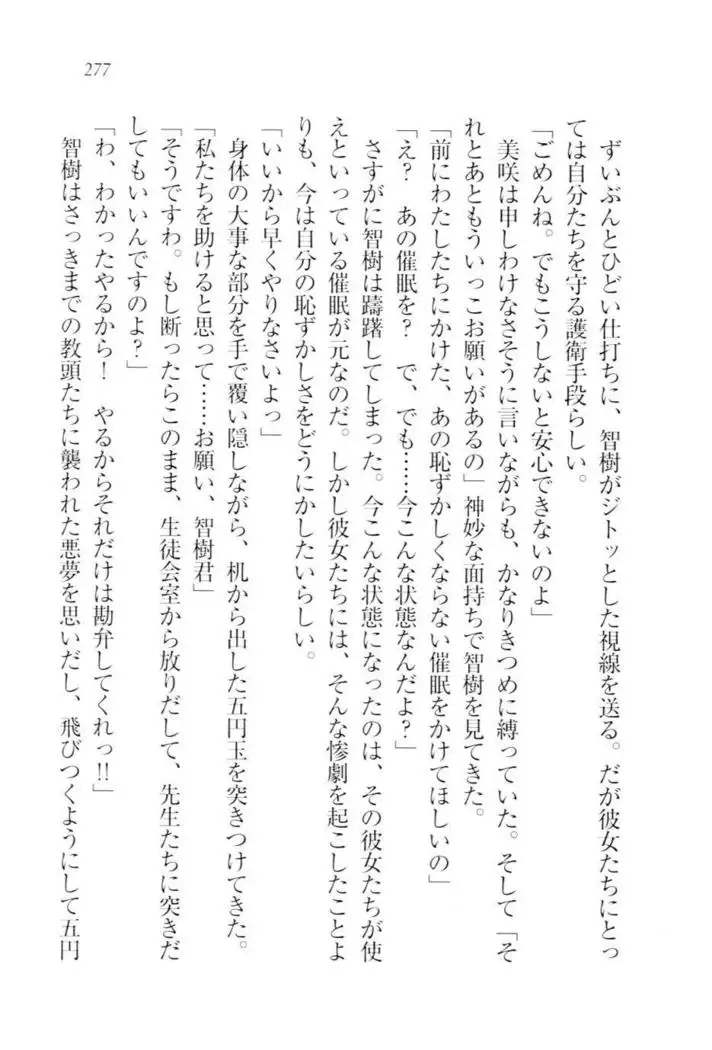 277
ずいぶんとひどい仕打ちに、智樹がジトッとした視線を送る。だが彼女たちにとっ
ては自分たちを守る護衛手段らしい。
「ごめんね。でもこうしないと安心できないのよ」
美咲は申しわけなさそうに言いながらも、かなりきつめに縛っていた。そして「そ
れとあともういっこお願いがあるの」神妙な面持ちで智樹を見てきた。
「前にわたしたちにかけた、あの恥ずかしくならない催眠をかけてほしいの」
「え？　あの催眠を？　で、でも……今こんな状態なんだよ？」
さすがに智樹は躊躇してしまった。今こんな状態になったのは、その彼女たちが使
えといっている催眠が元なのだ。しかし彼女たちには、そんな惨劇を起こしたことよ
りも、今は自分の恥ずかしさをどうにかしたいらしい。
「いいから早くやりなさいよっ」
身体の大事な部分を手で覆い隠しながら、机から出した五円玉を突きつけてきた。
「私たちを助けると思って……お願い、智樹君」
「そうですわ。もし断ったらこのまま、生徒会室から放りだして、先生たちに突きだ
してもいいんですのよ？」
「わ、わかったやるから！　やるからそれだけは勘弁してくれっ!!」
智樹はさっきまでの教頭たちに襲われた悪夢を思いだし、飛びつくようにして五円